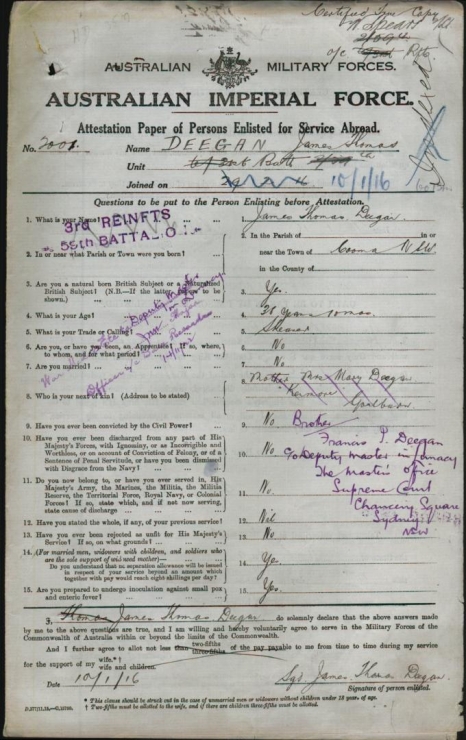 Certified True Copy
AUSTRALIAN MILITARY FORCES.
AUSTRALIAN IMPERIAL FORCE.
Attestation Paper of Persons Enlisted for Service Abroad.
No. Name DEEGAN James Thomas
Unit
Joined on 10/1/16
Questions to be put to the Person Enlisting before Attestation.
1. What is your Name? 1. James Thomas Deegan
3rd REINFTS
BATTALION
2. In or near what Parish or Town were you born? 2. In the Parish of in or
near the Town of Cooma NSW
in the County of
3. Are you a natural born British Subject or a Naturalized
British Subject? (N.B.—If the latter, to be
shown.) 3. Yes.
4. What is your Age? 4. years 10 mos.
5. What is your Trade or Calling? 5. Shearer
6. Are you, or have you been, an Apprentice? If so, where,
to whom, and for what period? 6. No
7. Are you married? 7. No
8. Who is your next of kin? (Address to be stated) 8. Mother Mrs Mary Deegan
Kenmore
Goulburn
9. Have you ever been convicted by the Civil Power? 9. No.
Brother
Francis J. Deegan
c/o Deputy Master in Lunacy
The Master's Office
Supreme Court
Chancery Square
Sydney
NSW
10. Have you ever been discharged from any part of His
Majesty's Forces, with Ignominy, or as Incorrigible and
Worthless, or on account of Conviction of Felony, or of a
Sentence of Penal Servitude, or have you been dismissed
with Disgrace from the Navy? 10. No.
11. Do you now belong to, or have you ever served in, His
Majesty's Army, the Marines, the Militia, the Militia
Reserve, the Territorial Force, Royal Navy, or Colonial
Forces? If so, state which, and if not now serving,
state cause of discharge 11. No.
12. Have you stated the whole, if any, of your previous service? 12. Nil
13. Have you ever been rejected as unfit for His Majesty's
Service? If so, on what grounds? 13. No
14. (For married men, widowers with children, and soldiers who
are the sole support of widowed mother)—
Do you understand that no separation allowance will be issued
in respect of your service beyond an amount which
together with pay would reach eight shillings per day? 14. Yes
15. Are you prepared to undergo inoculation against small pox
and enteric fever? 15. Yes.
I, Thomas James Thomas Deegan do solemnly declare that the above answers
made by me to the above questions are true, and I am willing and hereby voluntarily agree to serve in the Military Forces of the
Commonwealth of Australia within or beyond the limits of the Commonwealth.
And I further agree to allot not less than two-fifths three-fifths of the pay payable to me from time to time during my service
for the support of my wife.*†
wife and children.
Date 10/1/16 Sgd James Thomas Deegan
Signature of person enlisted.
* This clause should be struck out in the case of unmarried men or widowers without children under 18 years of age.
† Two-fifths must be allotted to the wife, and if there are children three-fifths must be allotted.